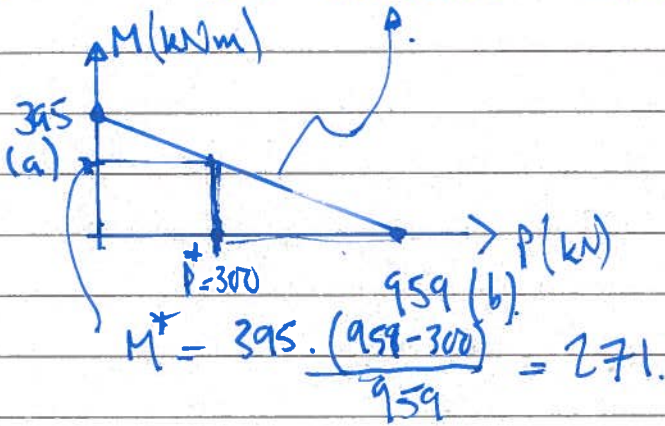 M(kNm)
395
(a)
P*=300
P(kN)
959 (b).
M* = 395 . (959-300) / 959 = 271.